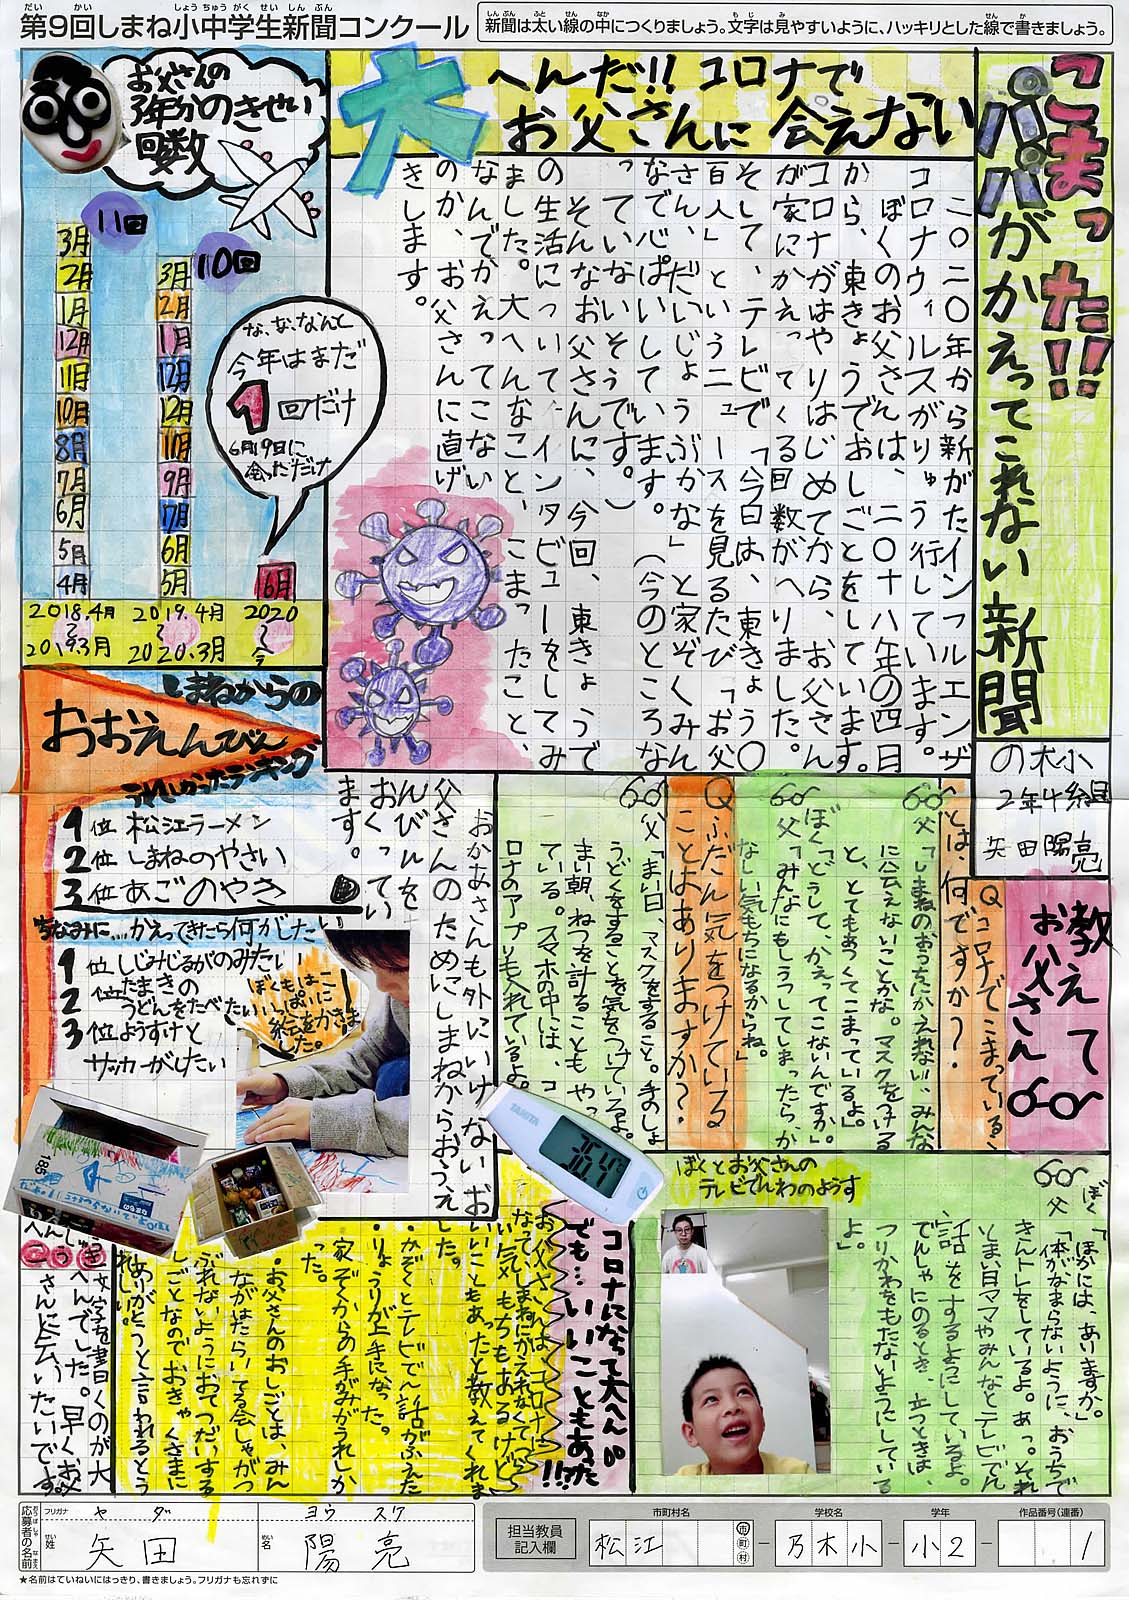 第9回しまね小中学生新聞コンクール
新聞は太い線の中につくりましょう。文字は見やすいように、ハッキリとした線で書きましょう。
こまった!!
パパがかえってこれない新聞
乃木小
2年4組
矢田陽亮
大へんだ!!コロナで
お父さんに会えない
二〇二〇年から新がたインフルエンザ
コロナウィルスがりゅう行しています。
ぼくのお父さんは、二〇十八年の四日
から、東きょうでおしごとをしています。
コロナがはやりはじめてから、お父さん
が家にかえってくる回数がへりました。
そして、テレビで「今日は、東きょう〇
百人」というニュースを見るたび「お父
さん、だいじょうぶかな」と家ぞくみん
なで心ぱいしています。(今のところな
っていないそうです。)
そんなお父さんに、今回、東きょうで
の生活についてインタビューをしてみ
ました。大へんなこと、こまったこと、
なんでかえってこない
のか、お父さんに直げ
きします。
お父さんの
3年分のきせい
回数
11回
3月
2月
1月
12月
11月
10月
8月
7月
6月
5月
4月
10回
3月
2月
1月
12月
12月
10月
9月
7月
6月
5月
な、な、なんと
今年はまだ
1回だけ
6月19日に
会っただけ
6月
2018.4月
〜
2019.3月
2019.4月
〜
2020.3月
2020
〜
今
しまねからの
おおえんびん
うれしかったランキング
1位 松江ラーメン
2位 しまねのやさい
3位 あごのやき
ちなみに…かえってきたら何がしたい
1位 しじみじるがのみたい
2位 たまきの
うどんをたべたい
3位 ようすけと
サッカーがしたい
おかあさんも外にいけないお
父さんのためにしまねからおうえ
んびんを
おくってい
ます。
ぼくもはこ
いっぱいに
絵をかきま
した。
教えて
お父さん
Qコロナでこまっているこ
とは、何ですか?
父「しまねのおうちにかえれない…みんな
に会えないことかな。マスクをつける
と、とてもあつくてこまっているよ。」
ぼく「どうして、かえってこないんですか。」
父「みんなにもしうつしてしまったら、か
なしい気もちになるからね。」
Qふだん気をつけている
ことはありますか?
父「まい日、マスクをすること。手のしょ
うどくをすることを気をつけているよ。
まい朝、ねつを計ることもやっ
ている。スマホの中には、コ
ロナのアプリも入れているよ。」
TANITA
36.4℃
ぼく「ほかには、ありますか。」
父「体がなまらないように、おうちで
きんトレをしているよ。あっ。それ
とまい日ママやみんなとテレビでん
話をするようにしているよ。
でんしゃにのるとき、立つときは、
つりかわをもたないようにしている
よ。」
ぼくとお父さんの
テレビでんわのようす
コロナになって大へん。
でも…いいこともあった!!
お父さんは、コロナに
なって、しまねにかえれなくてつら
い気もちもあるけど、
いいこともあったと教えてくれま
した。
・かぞくとテレビでん話がふえた
・りょうりが上手になった。
・家ぞくからの手がみがうれしか
った。
・お父さんのおしごとは、みん
ながはたらいてる会しゃがつ
ぶれないようにおてつだいする
しごとなのでおきゃくさまに
ありがとうと言われるとう
れしい。
へんしゅう
こうき
文字を書くのが大
へんでした。早くお父
さんに会いたいです。
応募者の名前
フリガナ
ヤダ
姓
矢田
ヨウスケ
名
陽亮
★名前はていねいにはっきり、書きましょう。フリガナも忘れずに
担当教員
記入欄
市町村名
松江
市
町
村
学校名
乃木小
学年
小2
作品番号(連番)
1